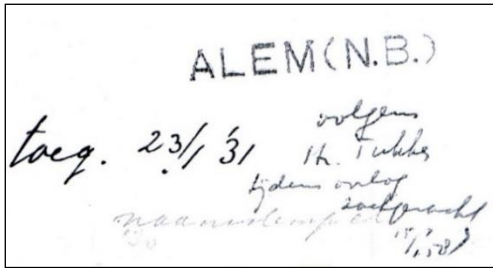 ALEM (N.B.)
toeg. 23/1 '31
volgens
Th. Tukker
tijdens oorlog
zoekgeraakt